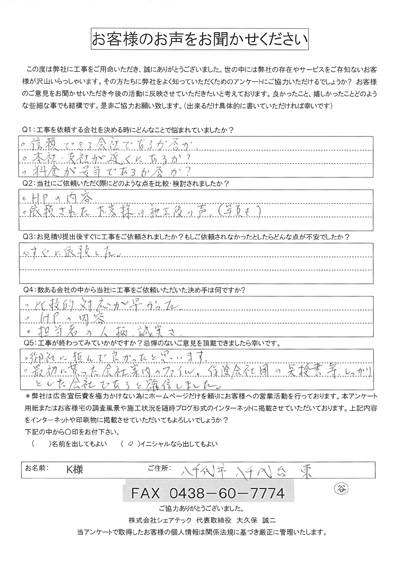 お客様のお声をお聞かせください
この度は弊社に工事をご用命いただき、誠にありがとうございました。世の中には弊社の存在やサービスをご存知ないお客
様が沢山いらっしゃいます。その方たちに弊社をよく知っていただくためのアンケートにご協力いただけるでしょうか? お客様
のご意見をお聞かせいただき今後の活動に反映させていただきたいと考えております。良かったこと、嬉しかったことどのよう
な些細な事でも結構です。是非ご協力お願い致します。(出来るだけ具体的に書いていただければ幸いです)
Q1:工事を依頼する会社を決める時にどんなことで悩まれていましたか?
○信頼のできる会社であるか否か。
○本社・支社が近くにあるか?
○料金が妥当であるか否か?
Q2:当社にご依頼いただく際にどのような点を比較・検討されましたか?
○HPの内容
○依頼されたお客様の施工後の声。(写真も)
Q3:お見積り提出後すぐに工事をご依頼されましたか?もしご依頼されなかったとしたらどんな点が不安でしたか?
○すぐに依頼した。
Q4:数ある会社の中から当社に工事をご依頼いただいた決め手は何ですか?
○比較的対応が早かった
○HPの内容
○担当者の人柄 誠実さ
Q5:工事が終わってみていかがですか?忌憚のないご意見を頂戴できましたら幸いです。
○御社に頼んで良かったと思います。
○最初に貰った会社案内のファイル。
しっかり
とした会社であると確信しました。
*弊社は広告宣伝費を極力かけない為にホームページだけを頼りにお客様への営業活動を行っております。本アンケート
用紙またはお客様宅の調査風景や施工状況を随時ブログ形式のインターネットに掲載させていただいております。上記内容
をインターネットや印刷物に掲載させていただいてもよろしいでしょうか?
下記の中から〇印をお付下さい。
( )名前を出してもよい (○)イニシャルなら出してもよい
お名前: K様 ご住所: 八千代市 八千代台東
FAX 0438-60-7774
谷
ご協力ありがとうございました。
株式会社シェアテック 代表取締役 大久保 誠二
当アンケートで取得したお客様の個人情報は関係法規に基づき厳正に管理いたします。